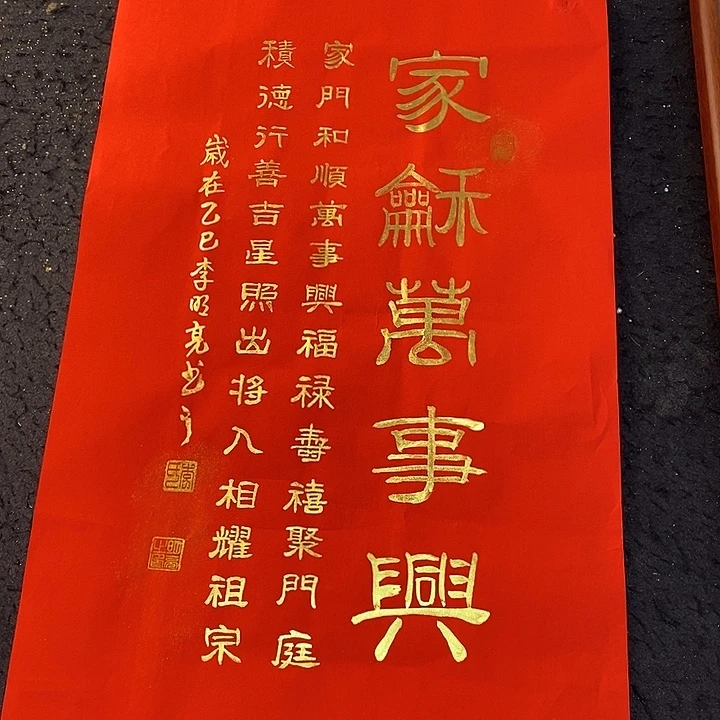 家龢萬事興
家門和順萬事興福禄壽禧聚門庭
積德行善吉星照出将入相耀祖宗
歲在乙巳李明亮书